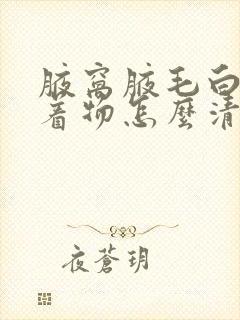 腋窩腋毛白
着物怎麼清
夜蒼玥